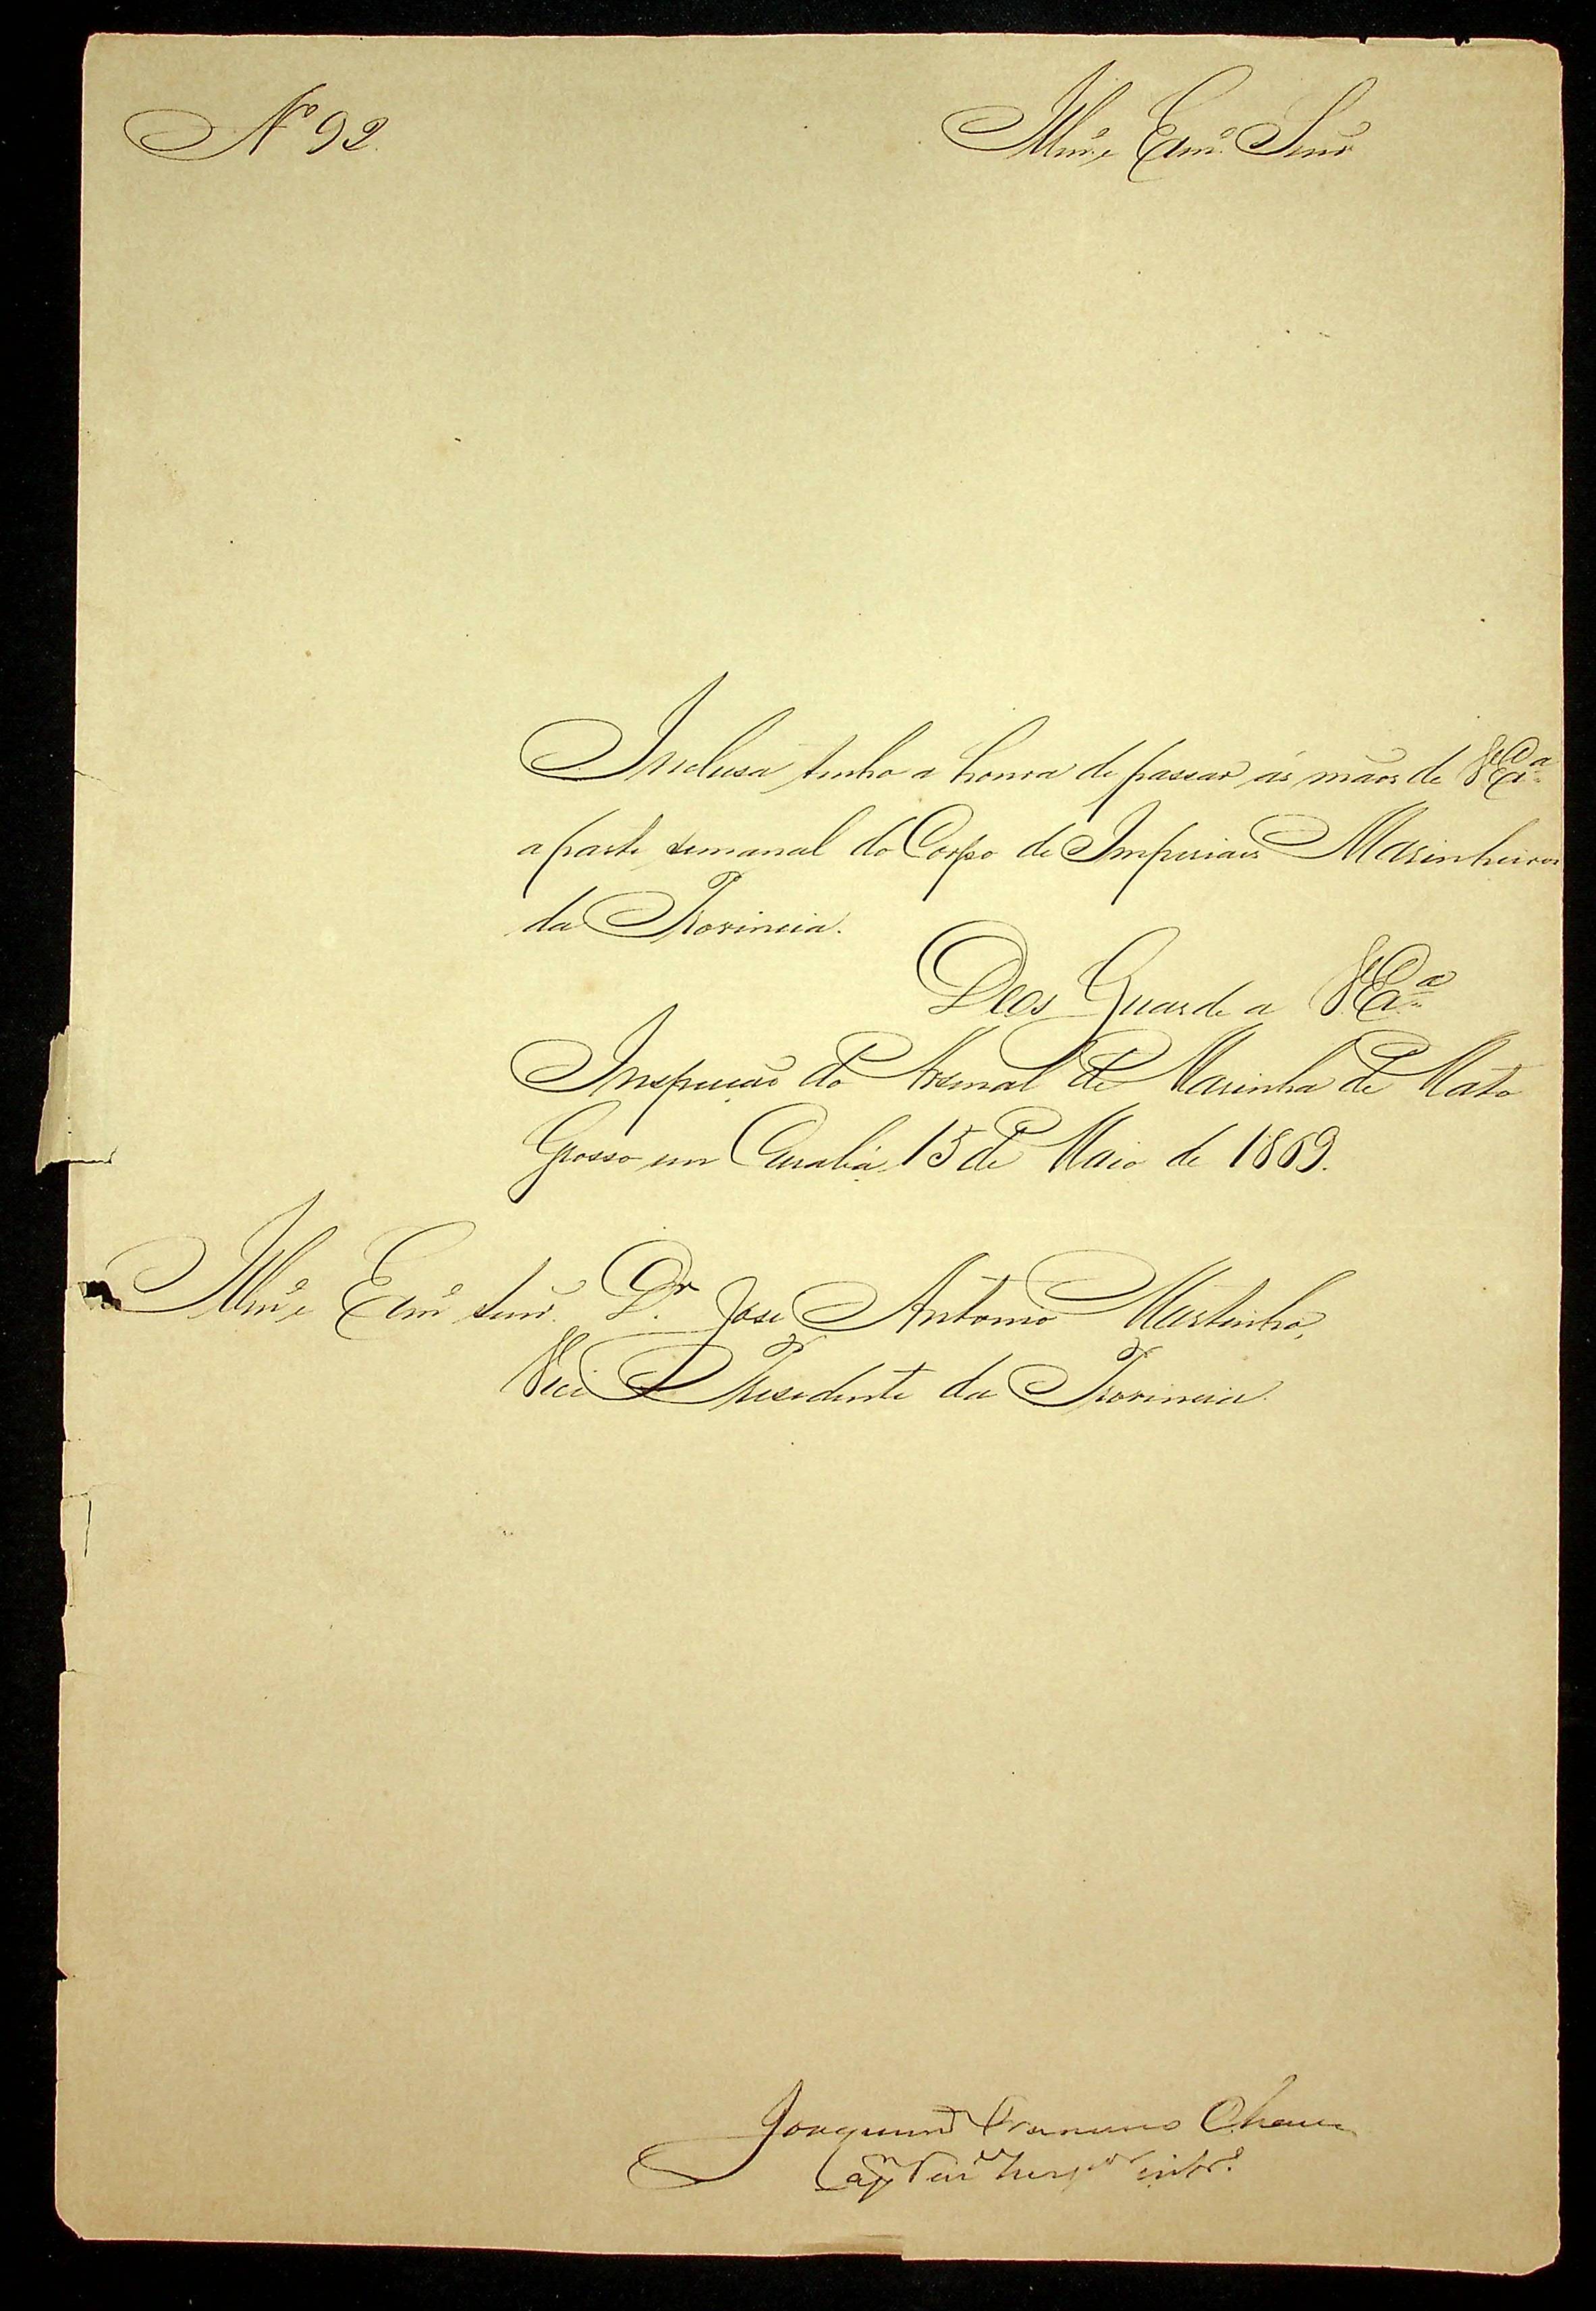 Nº 92.
Illmº e Exmº Senr
Inclusa tenho a honra de passar ás mãos de V. Exª
a parte semanal do Corpo de Imperiaes Marinheiros
da Provincia.
Deos Guarde a V. Exª
Inspecção do Arsenal de Marinha de Mato
Grosso em Cuiabá, 15 de Maio de 1869.
Illmº e Exmº Senr. Dr. José Antonio Murtinho,
Vice Presidente da Provincia.
Joaquim Francisco Chaves